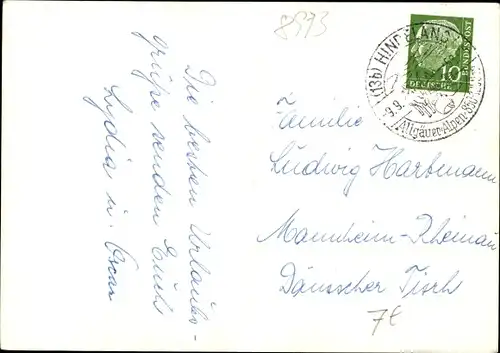 8973
Die besten Urlaubs-
grüße senden Euch
Lydia u. Oscar
(13b) HINDELANG
-9.9.
Allgäuer Alpen
10
DEUTSCHE
BUNDESPOST
Familie
Ludwig Hartmann
Mannheim-Rheinau
Dänischer Tisch